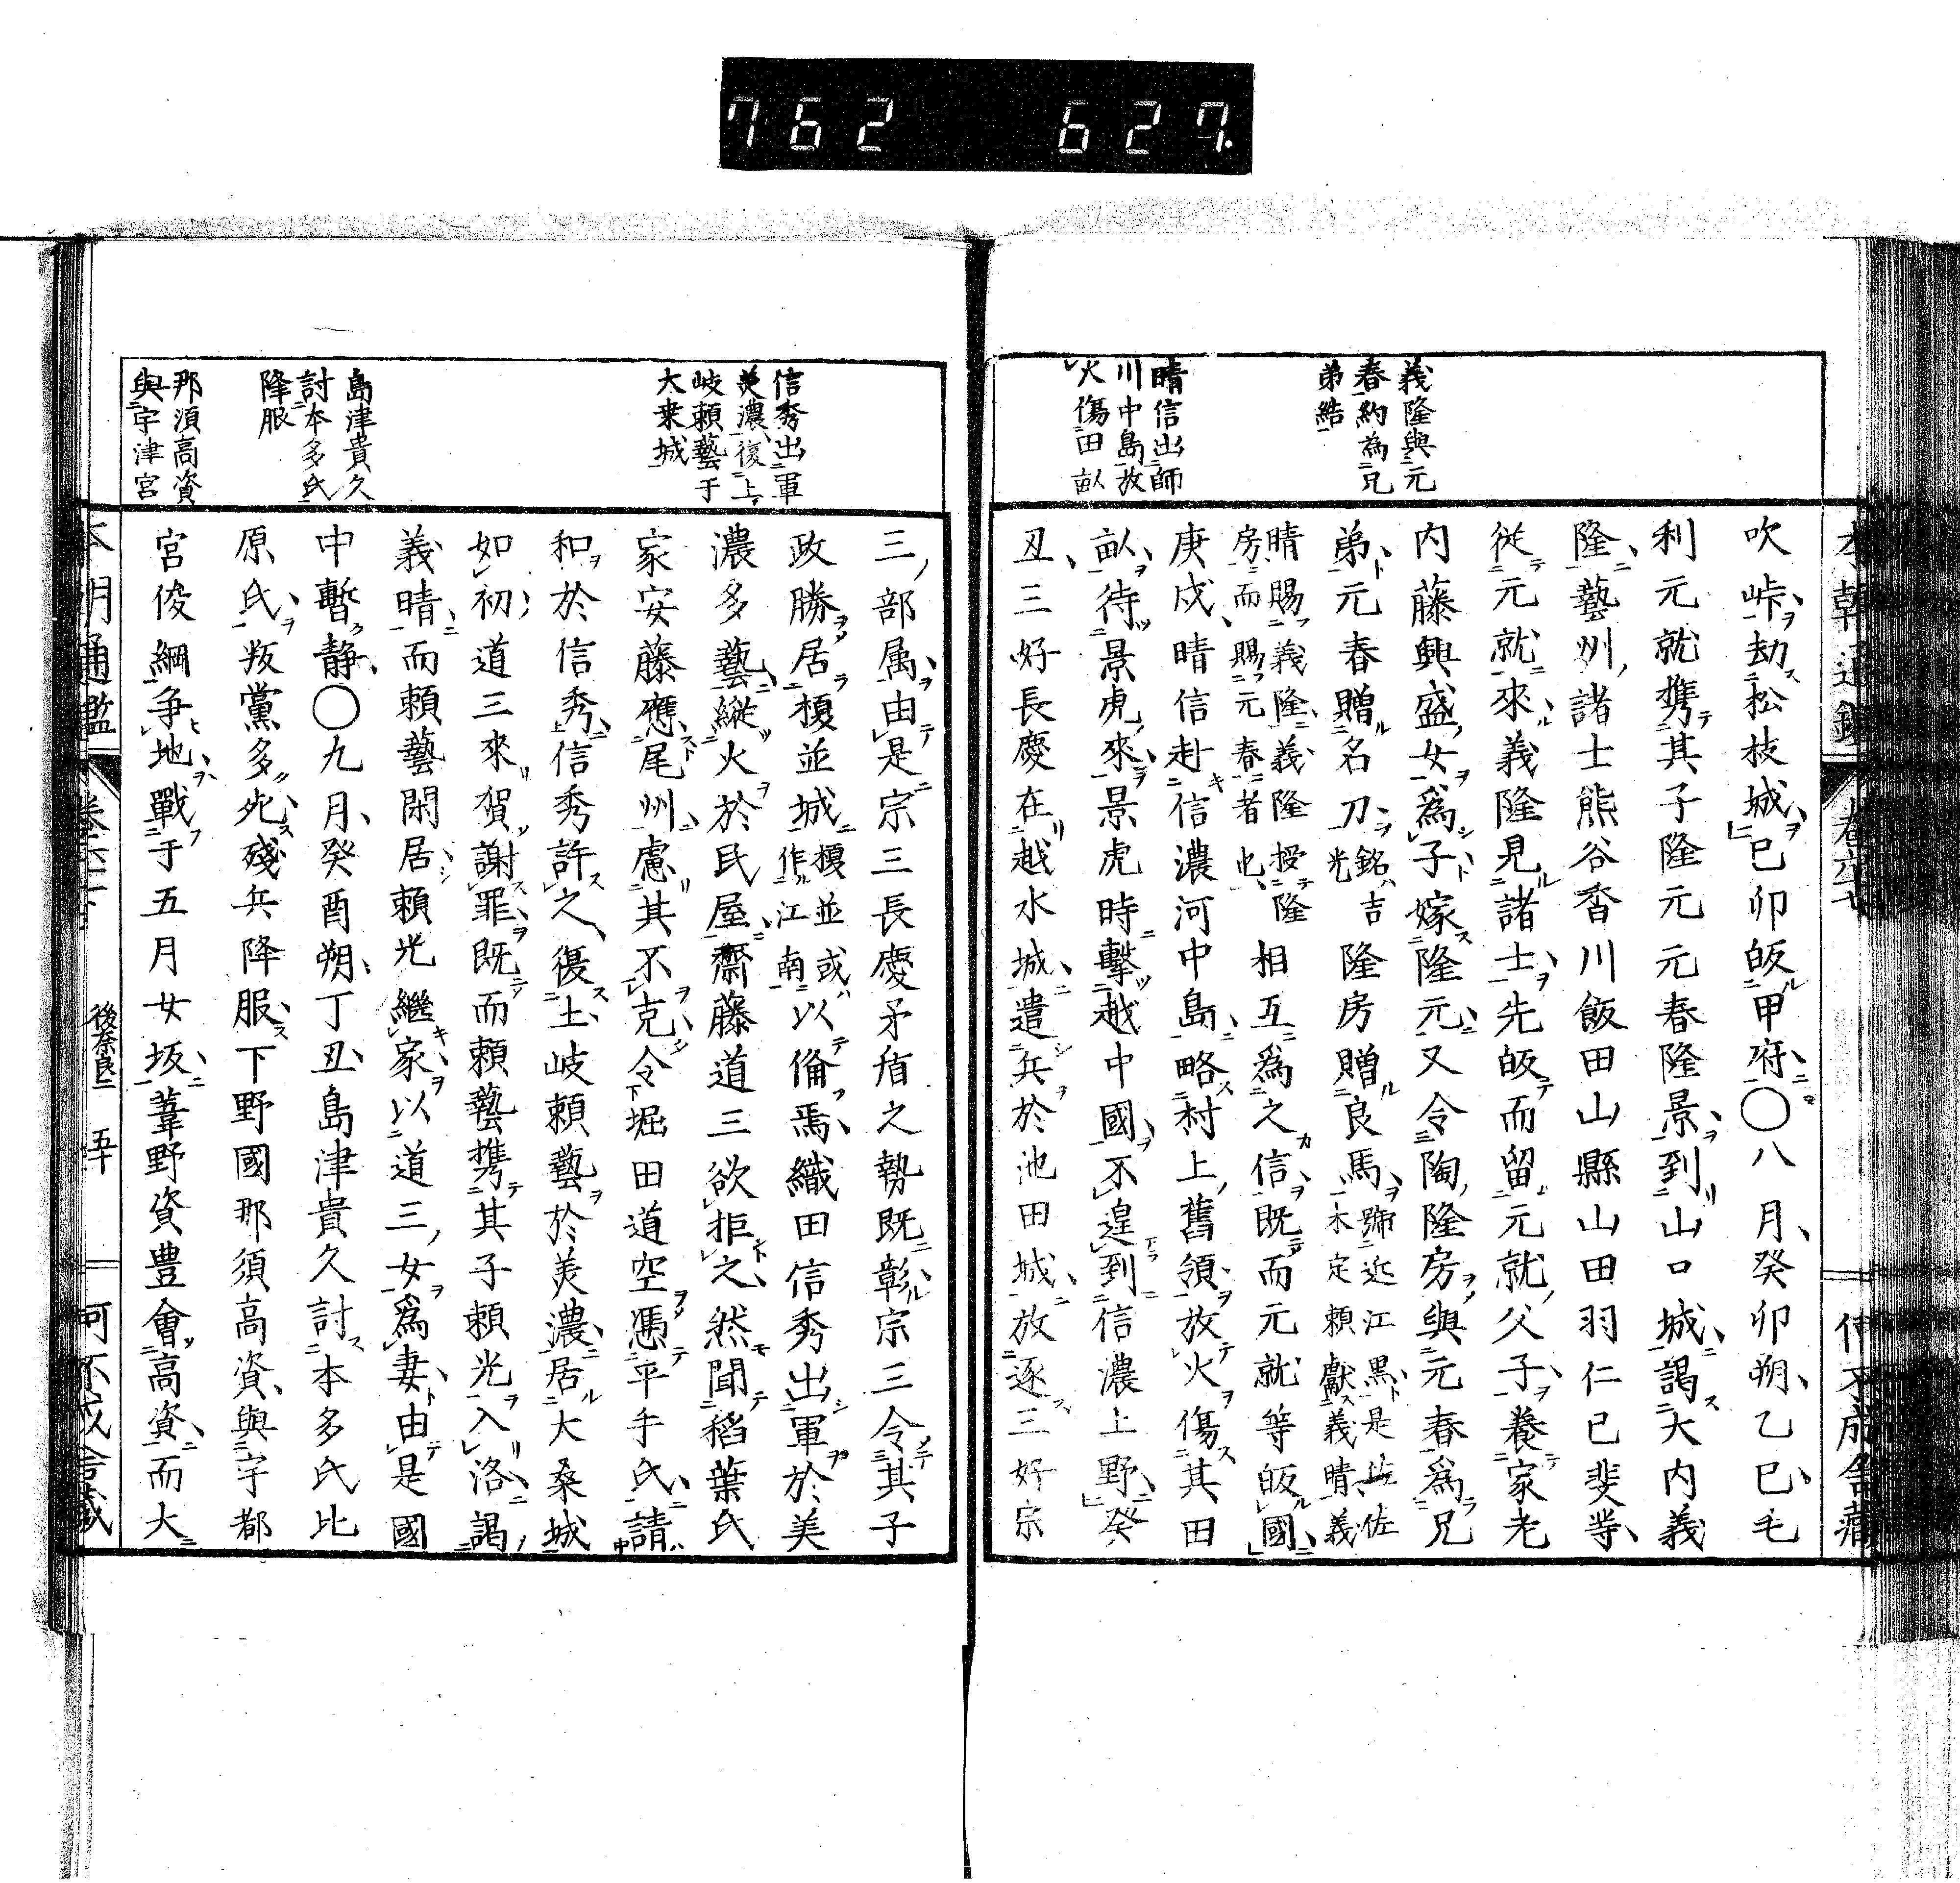 762 627
義隆與元
春約為兄
弟結
晴信出師
川中島放
火傷田畝
吹峠劫松枝城己卯皈甲府〇八月癸卯朔乙巳毛
利元就攜其子隆元元春隆景到山口城謁大内義
隆藝州諸士熊谷香川飯田山縣山田羽仁巳斐等
從元就來義隆見諸士先皈而留元就父子養家老
内藤興盛女為子嫁隆元又令陶隆房與元春為兄
弟元春贈名刀銘吉光隆房贈良馬號近江黒是佐佐木定頼獻義晴義
晴賜義隆義隆授隆房而賜元春者也相互為之信既而元就等皈國
庚戌晴信赴信濃河中島略村上舊領放火傷其田
畝待景虎來景虎時擊越中國不遑到信濃上野癸
丑三好長慶在越水城遣兵於池田城放逐三好宗
信秀出軍
美濃復土
岐頼藝于
大桒城
島津貴久
討本多氏
降服
那須高資
與宇津宮
三部属由是宗三長慶矛盾之勢既彰宗三令其子
政勝居榎並城榎並或作江南以備焉織田信秀出軍於美
濃多藝縦火於民屋齋藤道三欲拒之然聞稻葉氏
家安藤應尾州慮其不克令堀田道空憑平手氏請
和於信秀信秀許之復土岐頼藝於美濃居大桑城
如初道三來賀謝罪既而頼藝攜其子頼光入洛謁
義晴而頼藝閑居頼光繼家以道三女為妻由是國
中暫静〇九月癸酉朔丁丑島津貴久討本多氏比
原氏叛黨多死殘兵降服下野國那須高資與宇都
宮俊綱爭地戰于五月女坂葦野資豊會高資而大
本朝通鑑 後奈良二 五十